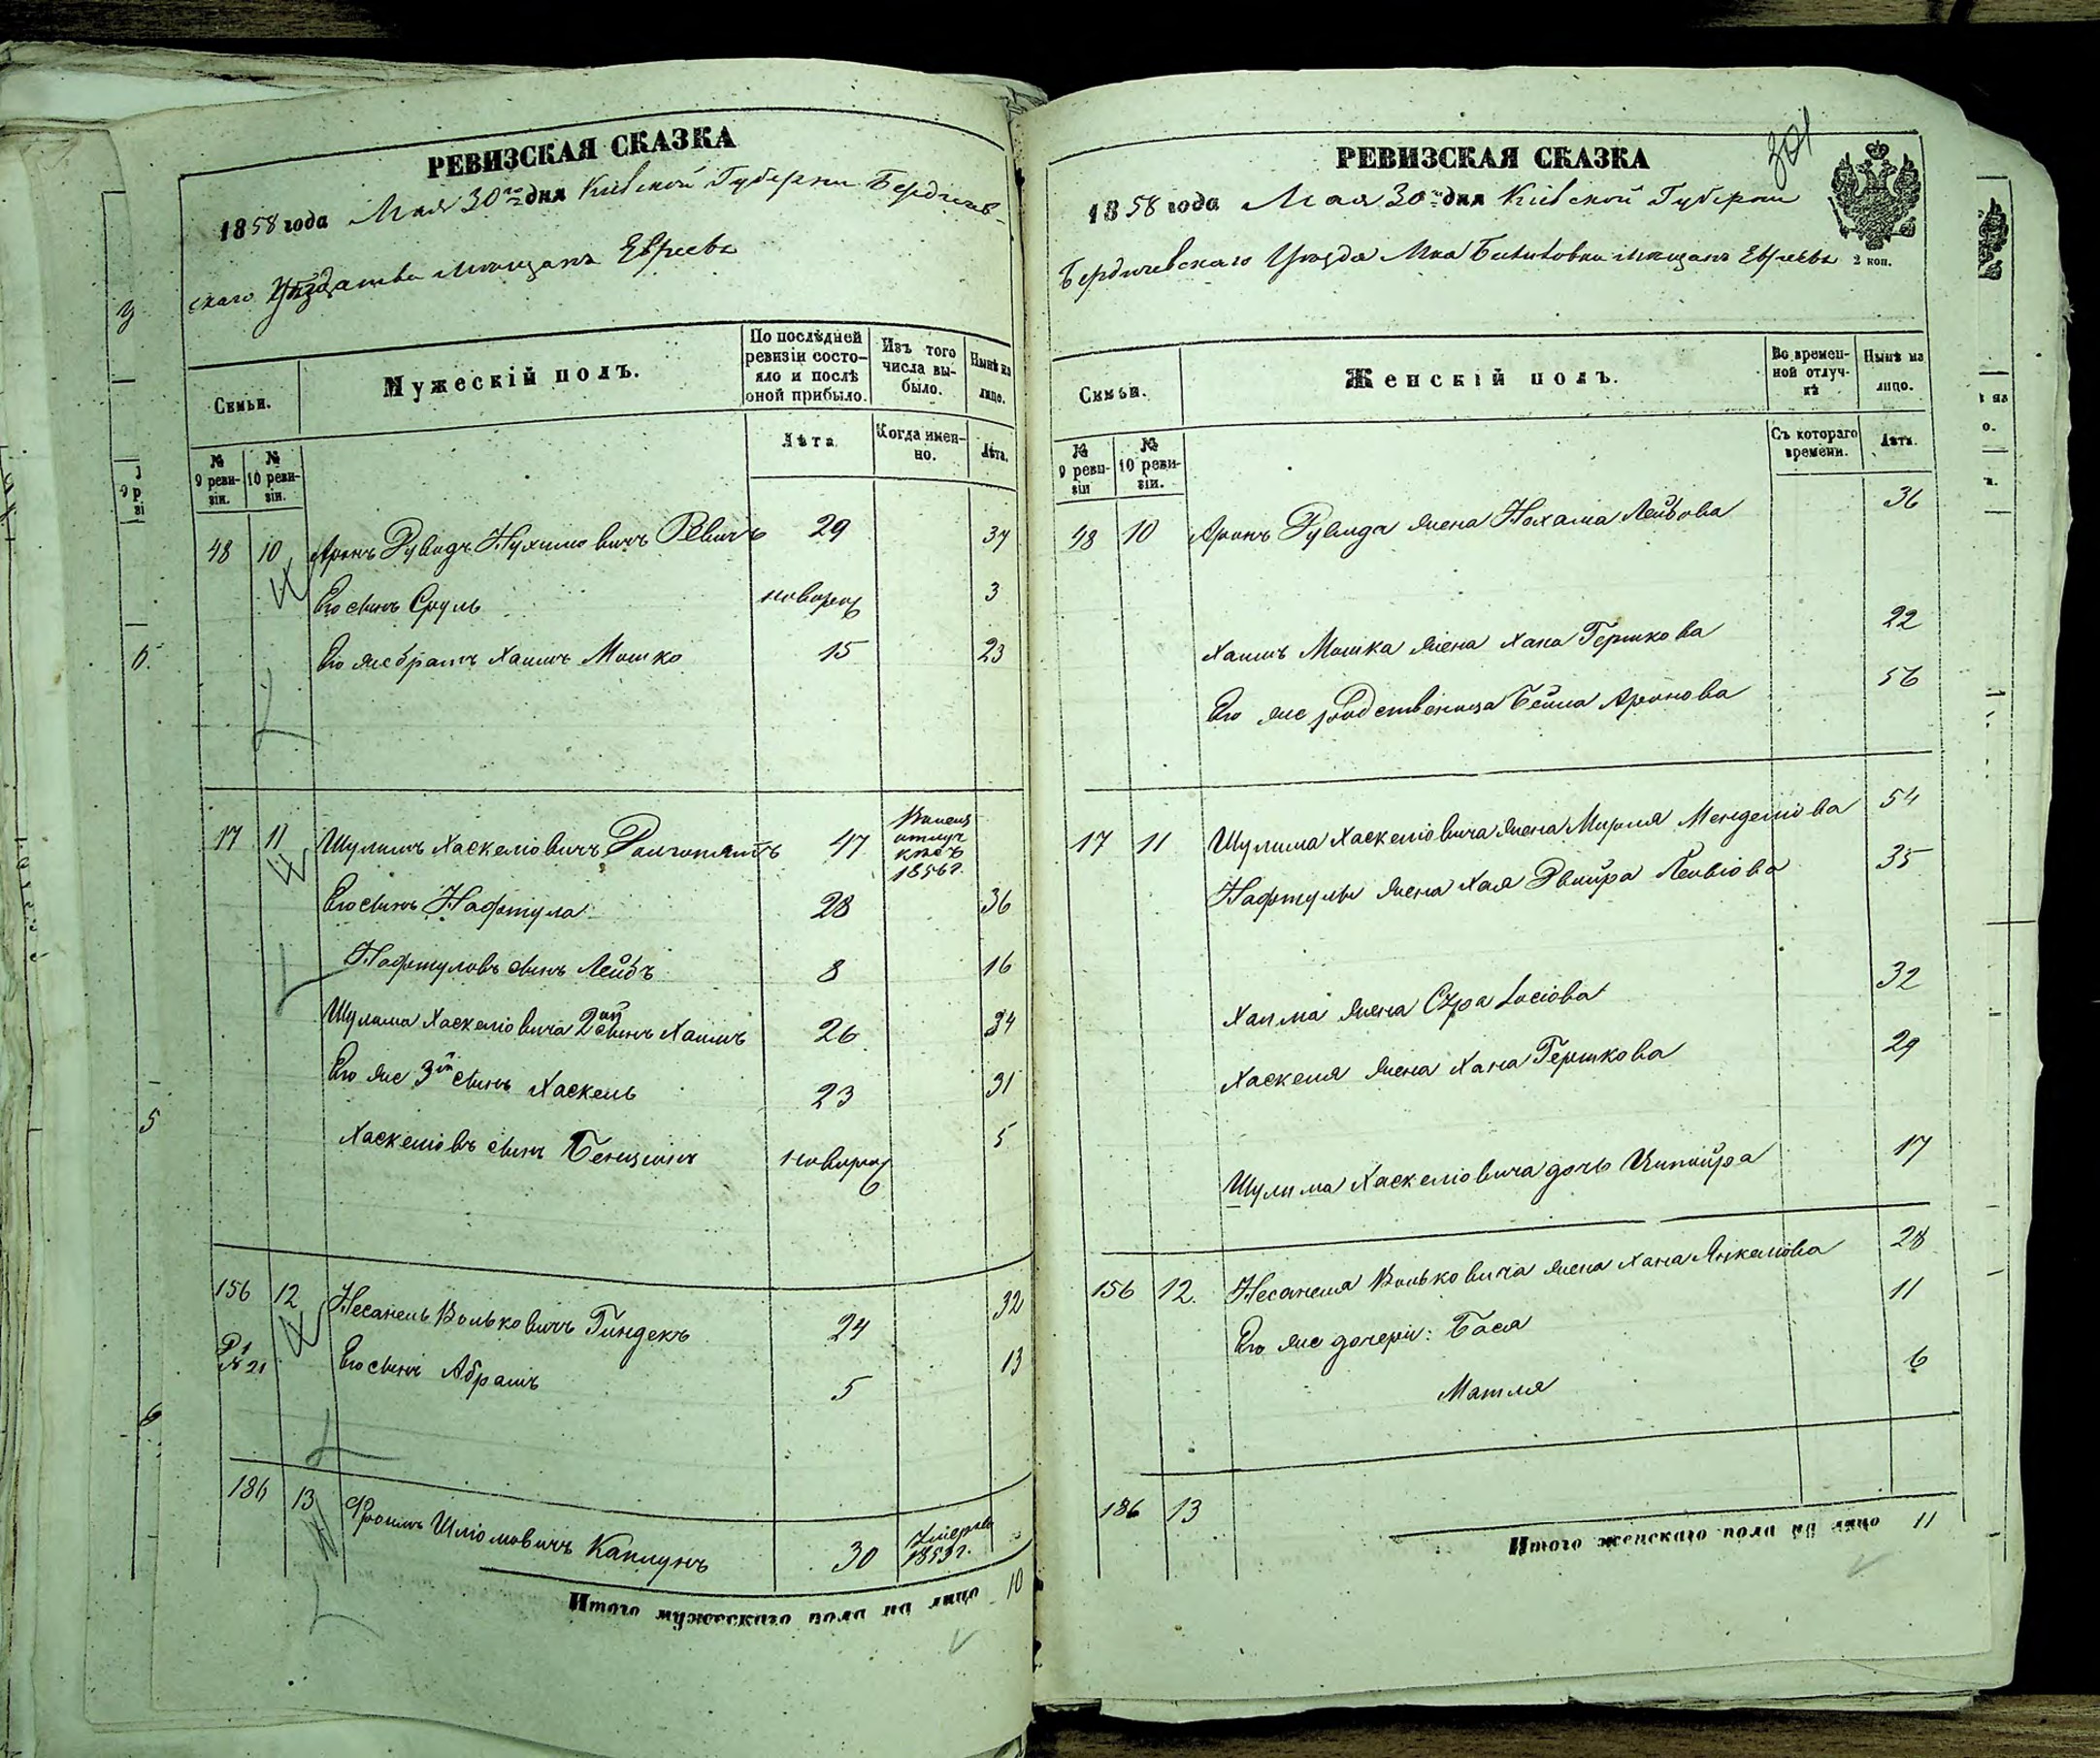 РЕВИЗСКАЯ СКАЗКА
1858 года Мая 30го дня Кіевской Губерніи Бердичев-
скаго Уѣзда мѣщанъ Евреевъ
Семьи.
Мужескій полъ.
По послѣдней ревизіи состо-
яло и послѣ оной прибыло.
Изъ того числа вы-
было.
Нынѣ на лицо.
№ 9 реви-
зіи.
№ 10 реви-
зіи.
Лѣта.
Когда имен-
но.
Лѣта.
48 10 Аронъ Рувидъ Нухимовичъ 29 37
Его сынъ Сруль новорож 3
Его же братъ Хаимъ Мошко 15 23
17 11 Шулимъ Хаскеліовичъ 47 отлуч
1856г.
Его сынъ Нафтула 28 36
Нафтуловъ сынъ Лейбъ 8 16
Шулима Хаскеліовича 2ой сынъ Хаимъ 26 34
Его же 3й сынъ Хаскель 23 31
Хаскеліовъ сынъ Бенціонъ новорож 5
156 12 Несанель Вольковичъ Гиндекъ 24 32
№ 21 Его сынъ Абрамъ 5 13
186 13 Фроимъ Шліомовичъ Каплунъ 30 Умеръ
1853г.
Итого мужескаго пола на лицо 10
301
РЕВИЗСКАЯ СКАЗКА
1858 года Мая 30го дня Кіевской Губерніи
Бердичевскаго Уѣзда Мка Бѣлиловки мѣщанъ Евреевъ
2 коп.
Семьи.
Женскій полъ.
Во времен-
ной отлуч-
кѣ
Нынѣ на лицо.
№ 9 реви-
зіи
№ 10 реви-
зіи.
Съ котораго времени.
Лѣта.
48 10 Аронъ Рувида жена Нохама Лейбова 36
Хаимъ Мошка жена Хана Гершкова 22
Его же родственица Бейла Аронова 56
17 11 Шулима Хаскеліовича жена Мирля Менделіова 54
Нафтулы жена Хая Двойра Лейбіова 35
Хаима жена Сура Іосіова 32
Хаскеля жена Хана Гершкова 29
Шулима Хаскеліовича дочь Ципойра 17
156 12. Несанеля Вольковича жена Хана Янкеліова 28
Его же дочери: Бася 11
Матля 6
186 13
Итого женскаго пола на лицо 11